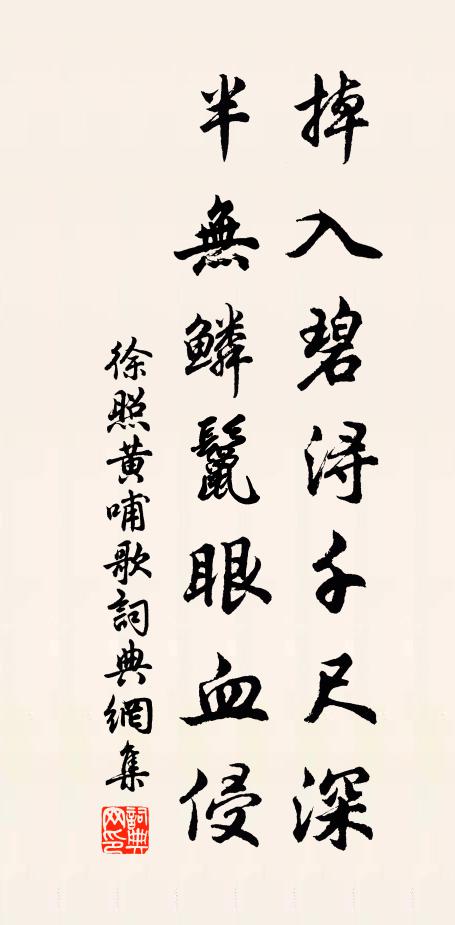 掉入碧潯千尺深
半無鱗鬣眼血侵
徐照黄哺歌詞典網集
詞典網印